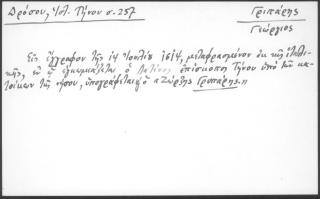 Δρόσου, Ἱστ. Τήνου σ. 257
Γριπάρης
Γεώργιος
Εἰς ἔγγραφον τῆς 14 Ἰουλίου 1614, μεταφρασμένον ἐκ τῆς ἰταλι-
κῆς, ἐν ᾧ ὁ Λατῖνος ἐπίσκοπος Τήνου ὑπὸ τῶν κα-
τοίκων τῆς νήσου, ὑπογράφεται ὁ «Ζώρζης Γρυπάρης»